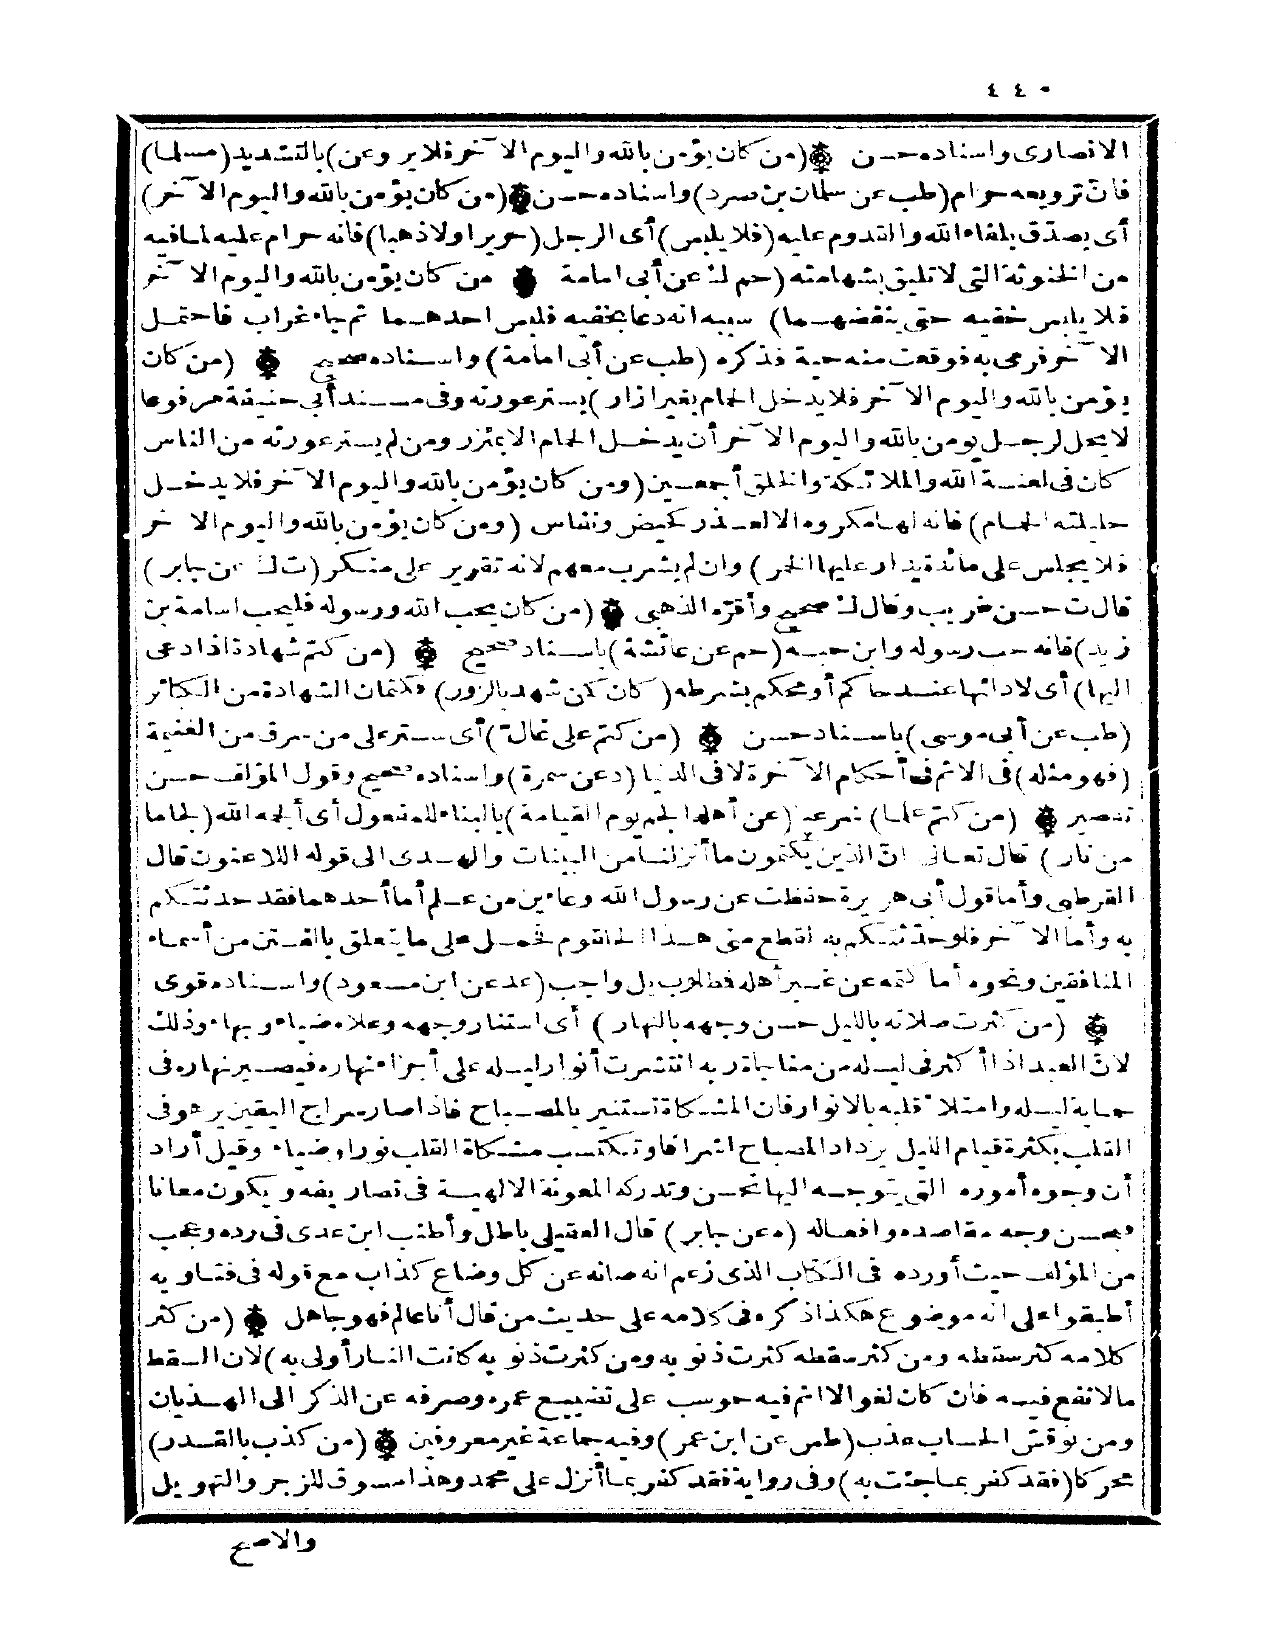 ٤٤٠
الانصارى واسناده حسن (من كان يؤمن بالله واليوم الآخر فلا يروعن) بالتشديد (مسلما)
فان ترويعه حرام (طب عن سلمان بن صرد) واسناده حسن (من كان يؤمن بالله واليوم الآخر)
أى يصدّق بلقاء الله والقدوم عليه (فلا يلبس) أى الرجل (حريرا ولا ذهبا) فانه حرام عليه لما فيه
من الخنوثة التى لا تليق بشهامته (حم ك عن أبى امامة من كان يؤمن بالله واليوم الآخر
فلا يلبس خفيه حتى ينفضهما) سببه انه دعا بخفيه فلبس احدهما ثم جاء غراب فاحتمل
الآخر فرمى به فوقعت منه حية فذكره (طب عن أبى امامة) واسناده صحيح (من كان
يؤمن بالله واليوم الآخر فلا يدخل الحمام بغير ازار) يستر عورته وفى مسند أبى حنيفة مرفوعا
لا يحل لرجل يؤمن بالله واليوم الآخر أن يدخل الحمام الا بمئزر ومن لم يستر عورته من الناس
كان فى لعنة الله والملائكة والخلق أجمعين (ومن كان يؤمن بالله واليوم الآخر فلا يدخل
حليلته الحمام) فانه لها مكروه الا لعذر كحيض ونفاس (ومن كان يؤمن بالله واليوم الآخر
فلا يجلس على مائدة يدار عليها الخمر) وان لم يشرب معهم لانه تقرير على منكر (ت ك عن جابر)
قال ت حسن غريب وقال ك صحيح وأقره الذهبى (من كان يحب الله ورسوله فليحب اسامة بن
زيد) فانه حب رسوله وابن حبه (حم عن عائشة) باسناد صحيح (من كتم شهادة اذا دعى
اليها) أى لادائها عند حاكم أو محكم بشرطه (كان كمن شهد بالزور) فكتمان الشهادة من الكبائر
(طب عن أبى موسى) باسناد حسن (من كتم على غال) أى ستر على من سرق من الغنيمة
(فهو مثله) فى الاثم فى أحكام الآخرة لا فى الدنيا (د عن سمرة) واسناده صحيح وقول المؤلف حسن
تقصير (من كتم علما) شرعيا (عن أهله ألجم يوم القيامة) بالبناء للمفعول أى ألجمه الله (لجاما
من نار) قال تعالى انّ الذين يكتمون ما أنزلنا من البينات والهدى الى قوله اللاعنون قال
القرطبى وأما قول أبى هريرة حفظت عن رسول الله وعاءين من علم أما أحدهما فقد حدثتكم
به وأما الآخر فلو حدثتكم به لقطع منى هذا الحلقوم فحمل على ما يتعلق بالفتن من أسماء
المنافقين ونحوه أما كتمه عن غير أهله فمطلوب بل واجب (عد عن ابن مسعود) واسناده قوى
(من كثرت صلاته بالليل حسن وجهه بالنهار) أى استنار وجهه وعلاه ضياء وبهاء وذلك
لانّ العبد اذا أكثر فى ليله من مناجاة ربه انتشرت أنوار ليله على أجزاء نهاره فيصير نهاره فى
حماية ليله وامتلاء قلبه بالانوار فان المشكاة تستنير بالمصباح فاذا صار سراج اليقين يزهو فى
القلب بكثرة قيام الليل يزداد المصباح اشراقا وتكتسب مشكاة القلب نورا وضياء وقيل أراد
أن وجوه أموره التى يتوجه اليها تحسن وتدركه المعونة الالهية فى تصاريفه ويكون معانا
فيحسن وجه مقاصده وافعاله (ه عن جابر) قال العقيلى باطل وأطنب ابن عدى فى رده وعجب
من المؤلف حيث أورده فى الكتاب الذى زعم انه صانه عن كل وضاع كذاب مع قوله فى فتاويه
أطبقوا على انه موضوع هكذا ذكره فى كلامه على حديث من قال أنا عالم فهو جاهل (من كثر
كلامه كثر سقطه ومن كثر سقطه كثرت ذنوبه ومن كثرت ذنوبه كانت النار أولى به) لان السقط
مالا نفع فيه فان كان لغوا لا اثم فيه حوسب على تضييع عمره وصرفه عن الذكر الى الهذيان
ومن نوقش الحساب عذب (طس عن ابن عمر) وفيه جماعة غير معروفين (من كذب بالقدر)
محركا (فقد كفر بما جئت به) وفى رواية فقد كفر بما أنزل على محمد وهذا مسوق للزجر والتهويل
والاصح